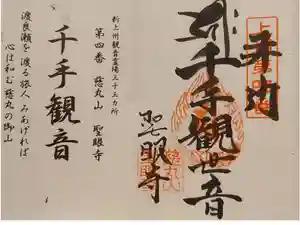 奉拝
千手観世音
聖眼寺
新上州観音霊場三十三カ所
第四番 慈丸山 聖眼寺
千手観音
渡良瀬を 渡る旅人 みあげれば
心は和む 慈丸の御山